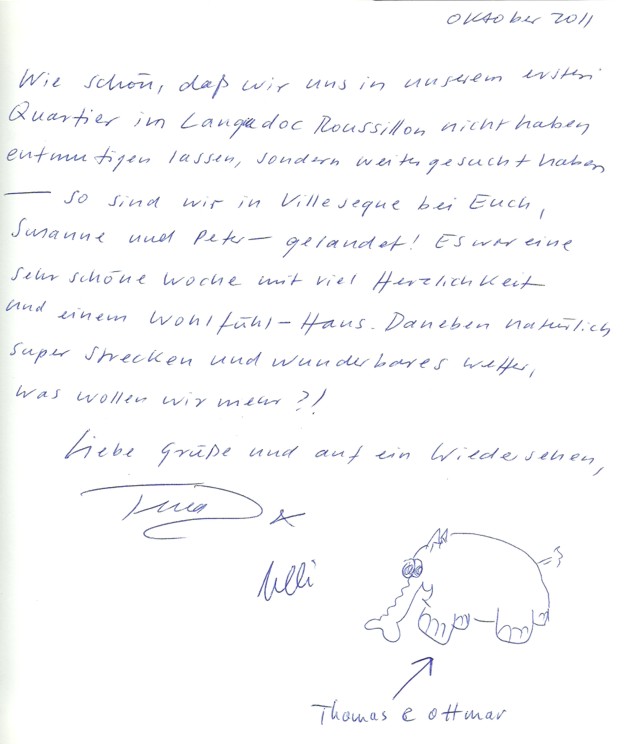 Oktober 2011
Wie schön, daß wir uns in unserem ersten
Quartier im Langedoc Roussillon nicht haben
entmutigen lassen, sondern weitergesucht haben
— so sind wir in Villeseque bei Euch,
Susanne und Peter — gelandet! Es war eine
sehr schöne Woche mit viel Herzlichkeit
und einem Wohlfühl-Haus. Daneben natürlich
super Strecken und wunderbares Wetter,
was wollen wir mehr?!
Liebe Grüße und auf ein Wiedersehen,
&
Ulli
Thomas & Ottmar